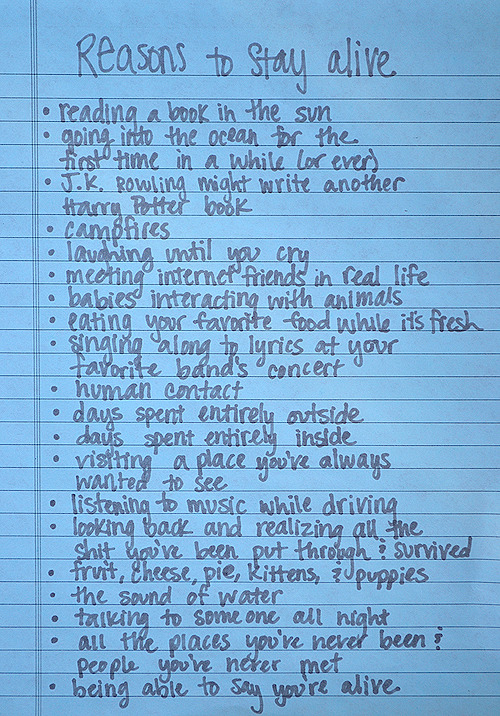 Reasons to Stay alive
• reading a book in the sun
• going into the ocean for the
first time in a while (or ever)
• J.K. Rowling might write another
Harry Potter book
• campfires
• laughing until you cry
• meeting internet friends in real life
• babies interacting with animals
• eating your favorite food while it's fresh
• singing along to lyrics at your
favorite band's concert
• human contact
• days spent entirely outside
• days spent entirely inside
• visiting a place you've always
wanted to see
• listening to music while driving
• looking back and realizing all the
shit you've been put through & survived
• fruit, cheese, pie, kittens, & puppies
• the sound of water
• talking to someone all night
• all the places you've never been &
people you've never met
• being able to say you're alive